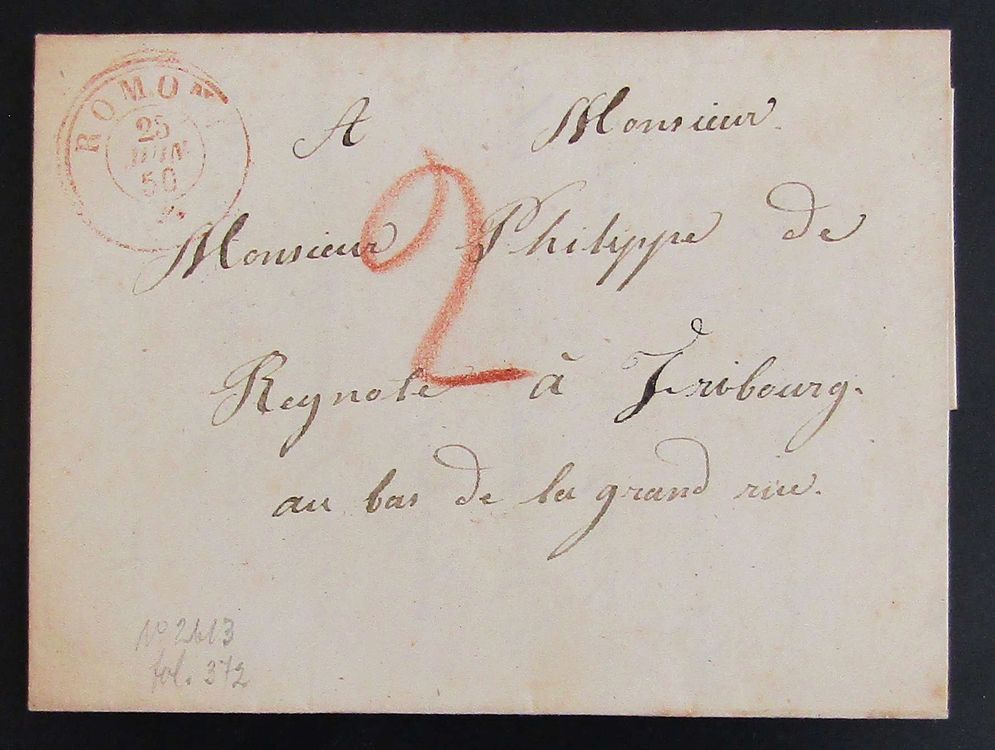 ROMONT
25
JUIN
50
A Monsieur
Monsieur Philippe de
2
Reynole à Fribourg.
au bas de la grand rue.
N° 2613
fol. 372